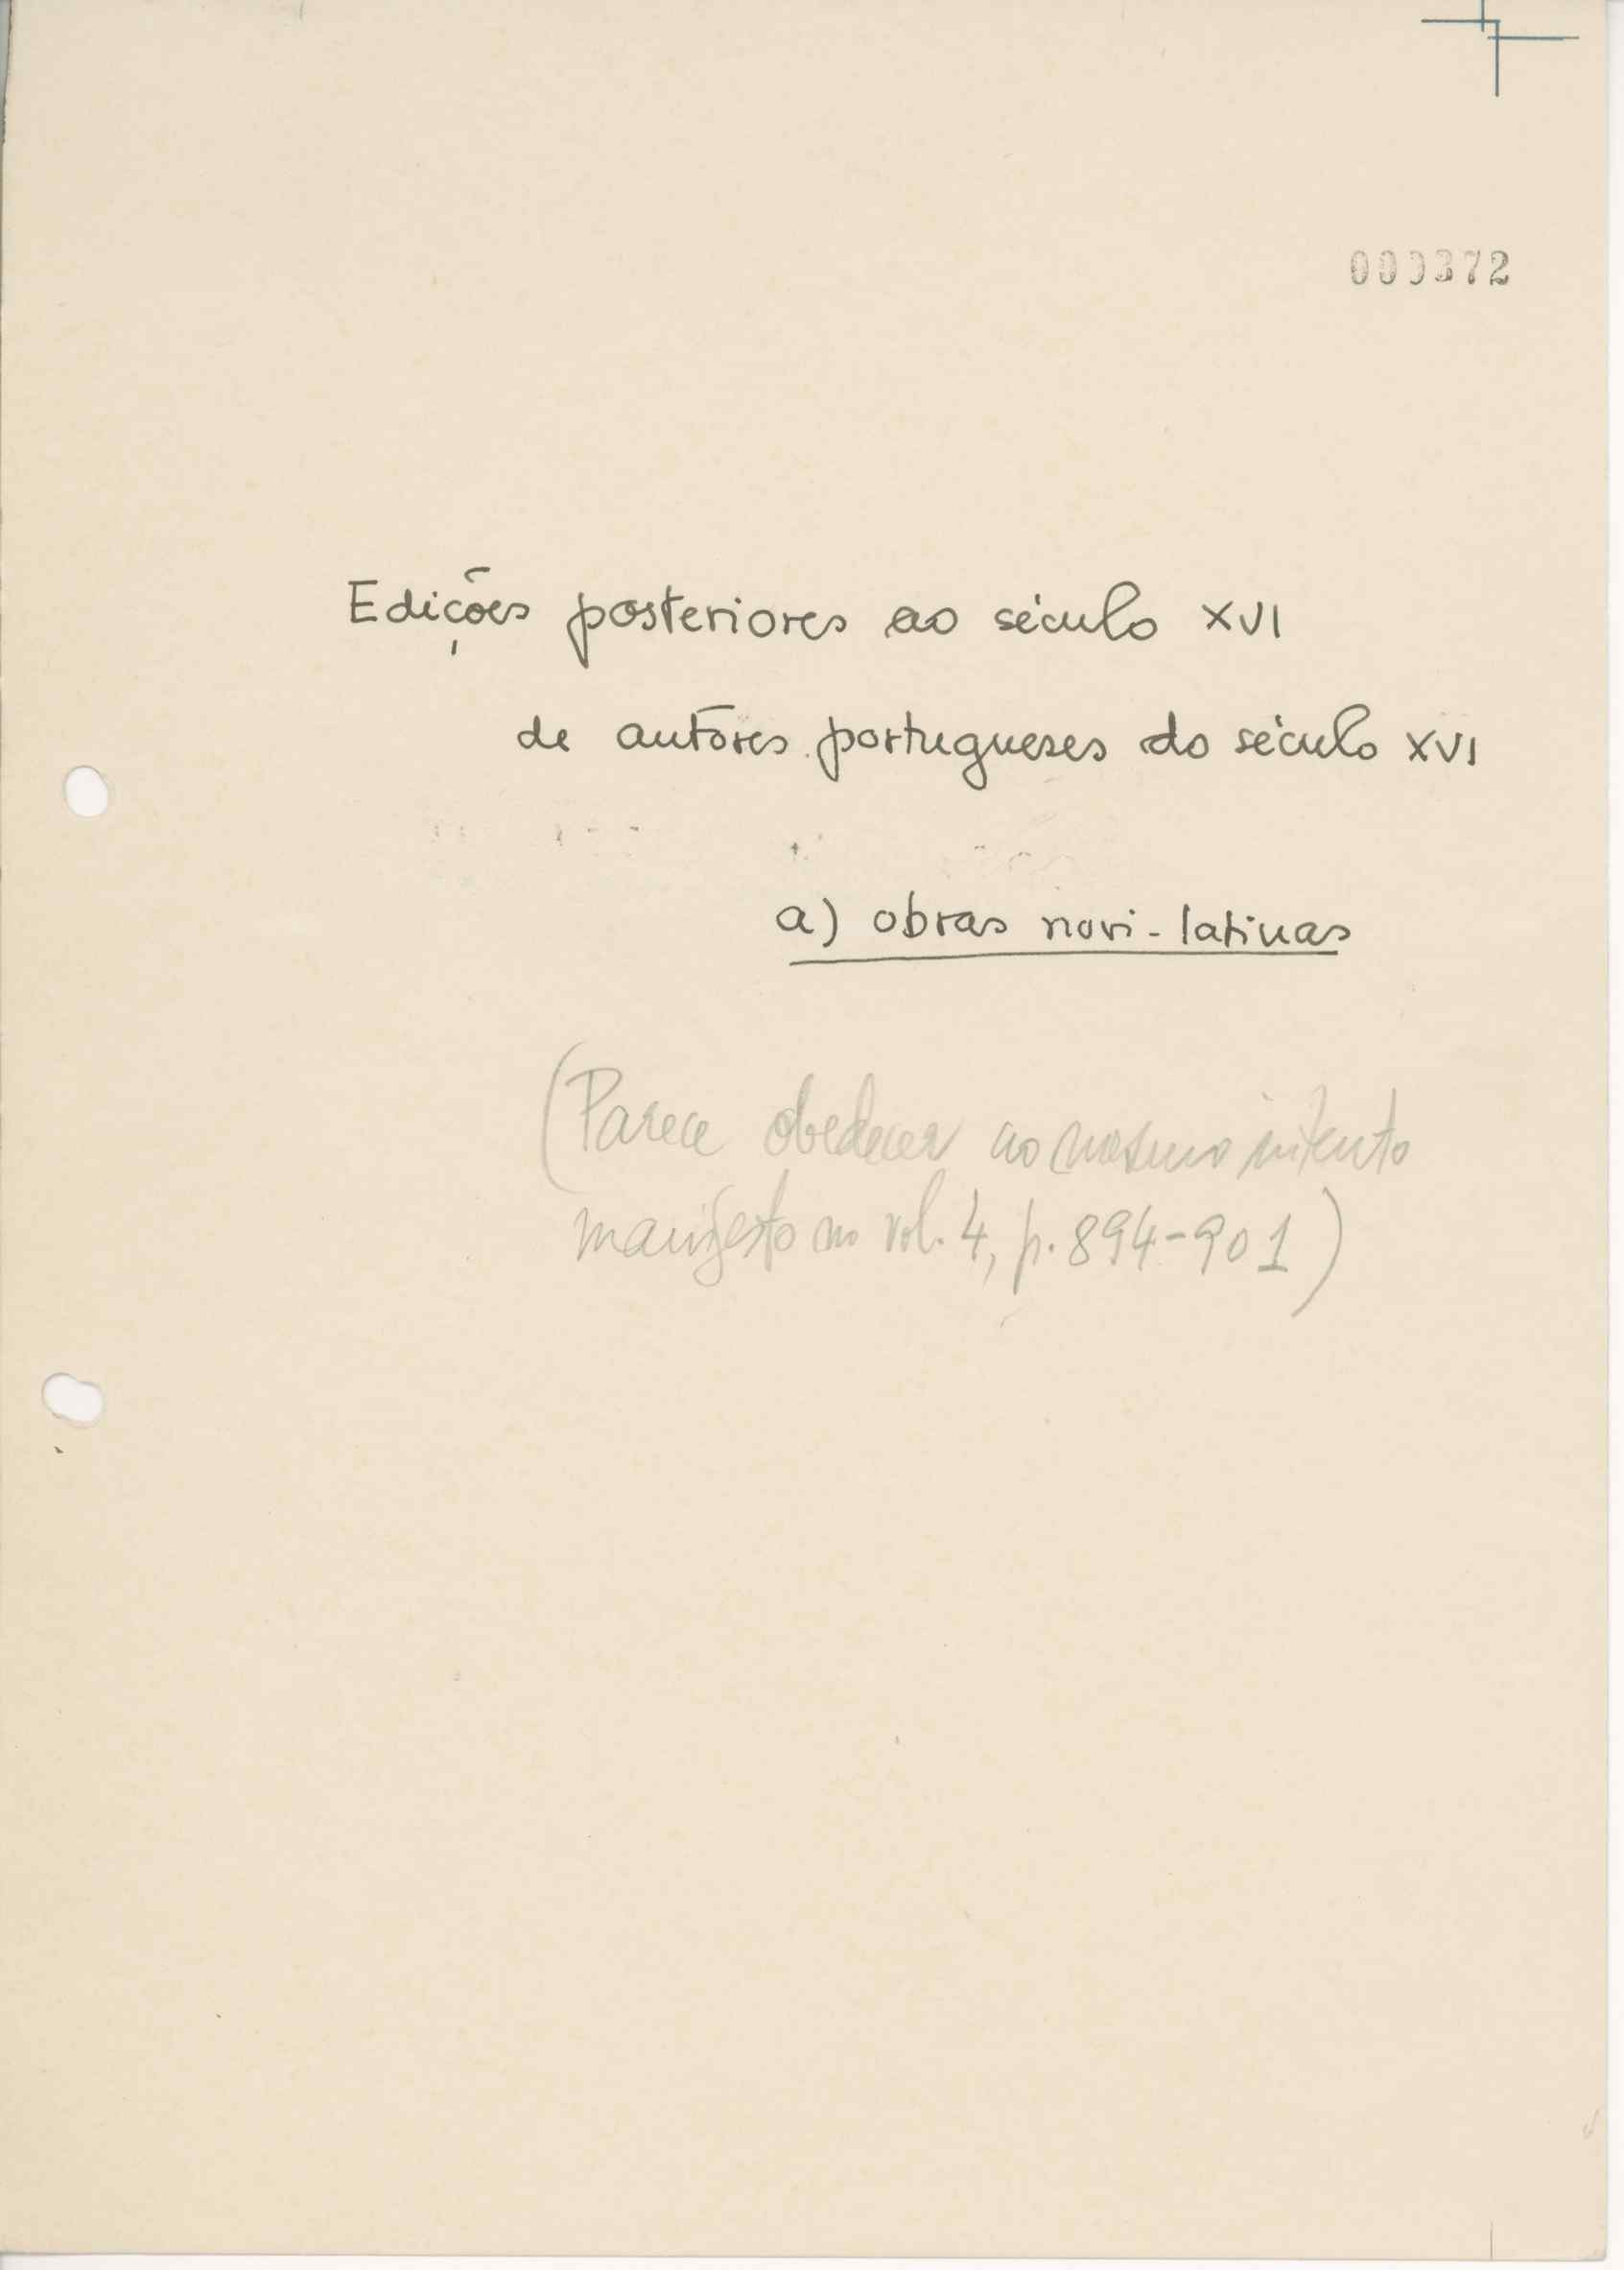 000372
Edições posteriores ao século XVI
de autores portugueses do século XVI
a) obras novi-latinas
(Parece obedecer ao mesmo intento
manifesto no vol. 4, p. 894-901)